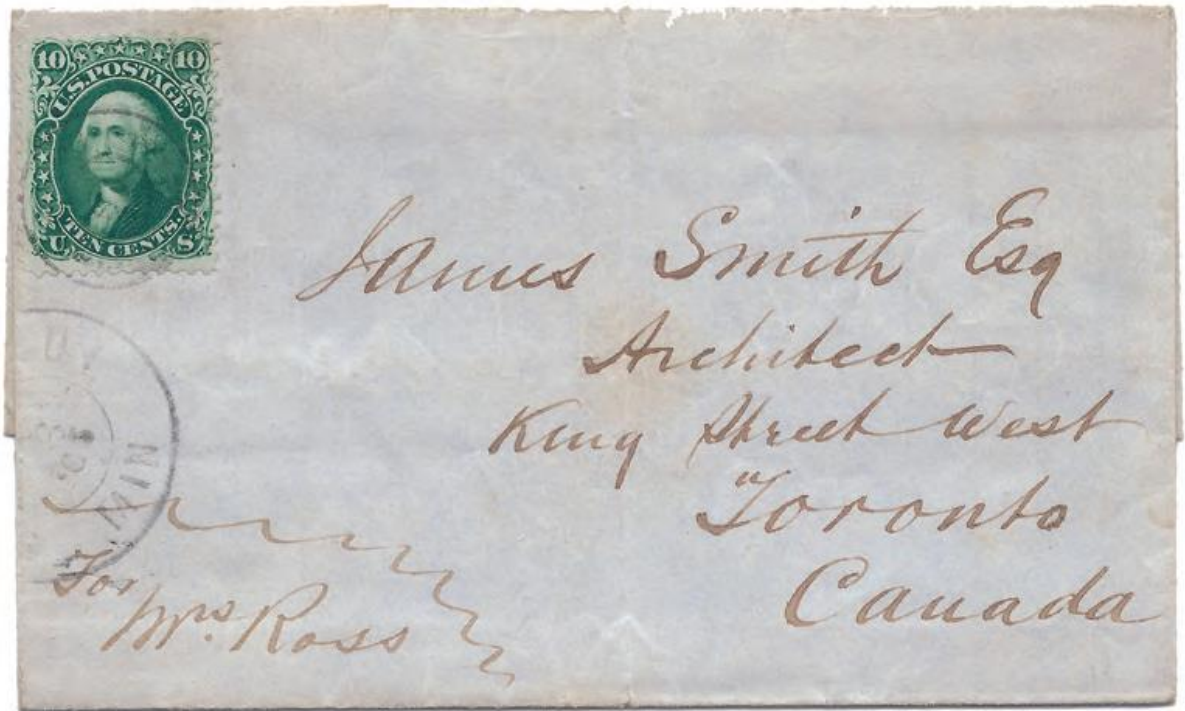 10 10
U.S. POSTAGE
TEN CENTS.
U S
James Smith Esq
Architect
King Street West
Toronto
Canada
MIN
For
Mrs. Ross